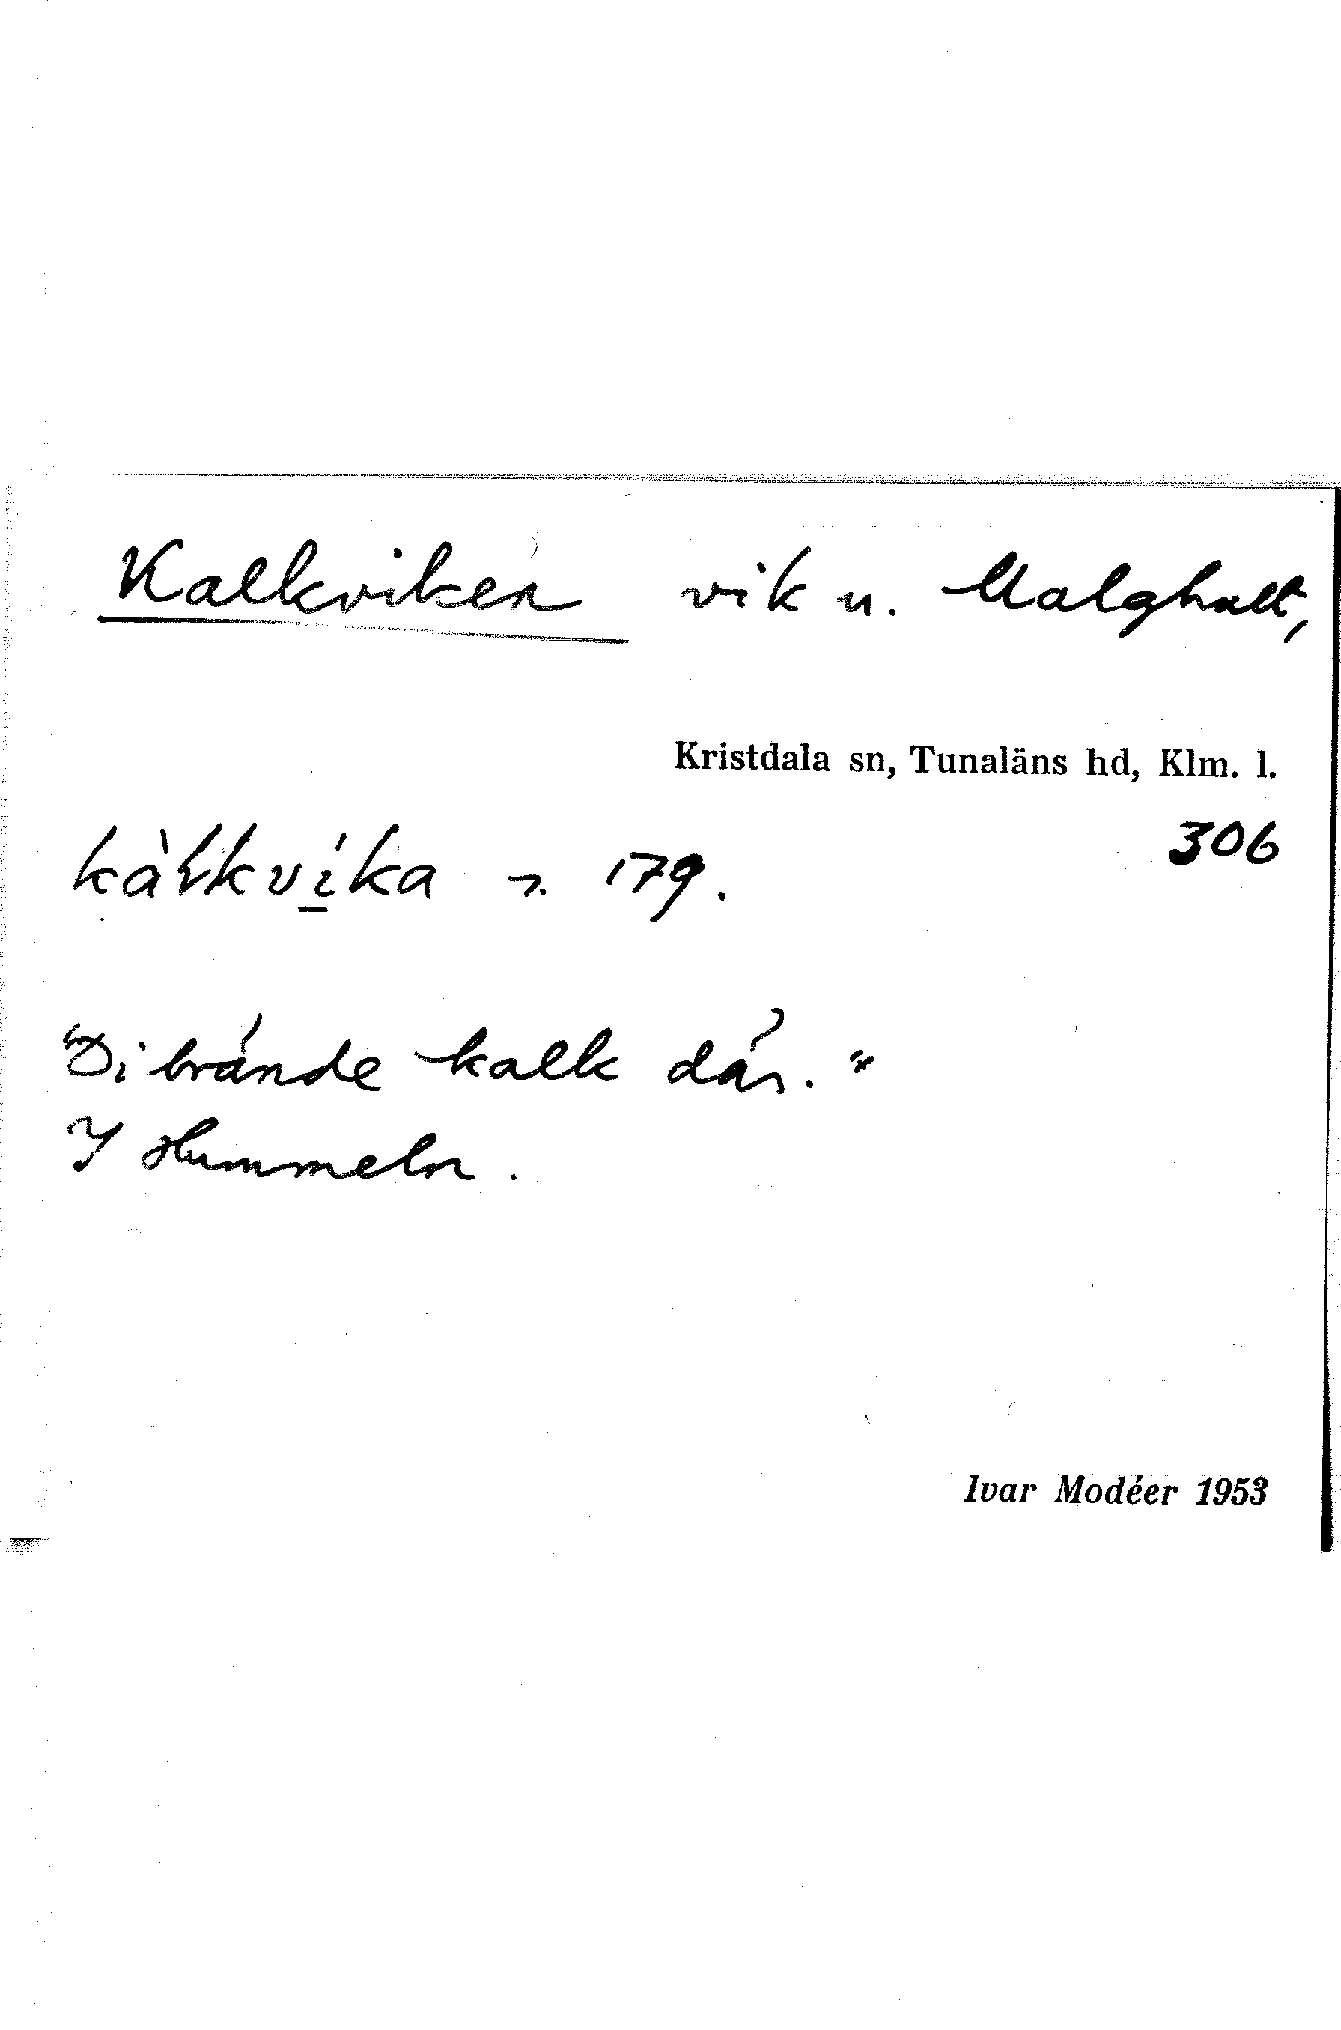 Kalkviken vik u. Malghult,
Kristdala sn, Tunaläns hd, Klm. l.
306
kàlkví̲ka 179.
"Di brände kalk där."
I Hummeln.
Ivar Modéer 1953